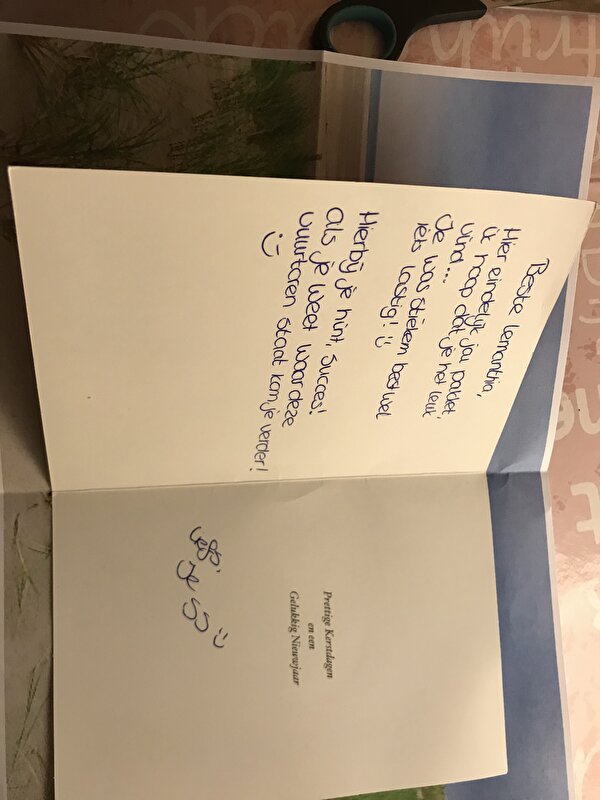 Beste Lemanthia,
Hier eindelijk jou pakket,
ik hoop dat je het leuk
vind...
Je was stiekem best wel
iets lastig! :)
Hierbij je hint, succes!
Als je weet waar deze
vuurtoren staat kom je verder!
:)
Prettige Kerstdagen
en een
Gelukkig Nieuwjaar
Liefs,
je SS :)